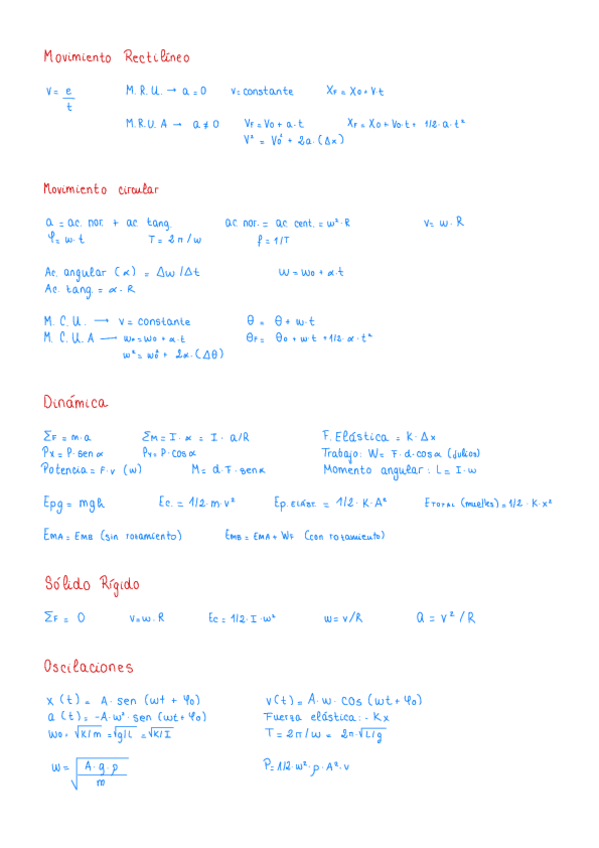 Movimiento Rectilíneo
v = e/t M. R. U. → a = 0 v = constante XF = X0 + v t
M. R. U. A → a ≠ 0 VF = V0 + a · t XF = X0 + V0 · t + 1/2 · a · t²
V² = V0² + 2a · (Δx)
Movimiento circular
a = ac. nor. + ac tang. ac nor. = ac. cent. = w² · R v = w · R
φ = w · t T = 2π/w f = 1/T
Ac. angular (α) = Δw/Δt w = w0 + α·t
Ac. tang. = α · R
M. C. U. → v = constante θ = θ + w · t
M. C. U. A → w0 = w0 + α · t θF = θ0 + w · t + 1/2 · α · t²
w² = w0² + 2α · (Δθ)
Dinámica
ΣF = m · a ΣM = I · α = I · a/R F. Elástica = K · Δx
Px = P · sen α Py = P · cos α Trabajo: W = F · d · cos α (julios)
Potencia = F · v (w) M = d · F · sen α Momento angular: L = I · w
Epg = mgh Ec. = 1/2 · m · v² Ep. elást. = 1/2 · K · A² ETOTAL (muelles) = 1/2 · K · x²
EMA = EMB (sin rozamiento) EMB = EMA + WF (con rozamiento)
Sólido Rígido
ΣF = 0 v = w · R Ec = 1/2 · I · w² w = v/R a = v²/R
Oscilaciones
x (t) = A · sen (wt + φ0) v (t) = A · w · cos (wt + φ0)
a (t) = -A · w² · sen (wt + φ0) Fuerza elástica: - Kx
w0 = √K/m = √g/L = √K/I T = 2π/w = 2π · √L/g
w = √A · g · ρ/m P = 1/2 · w² · ρ · A² · v